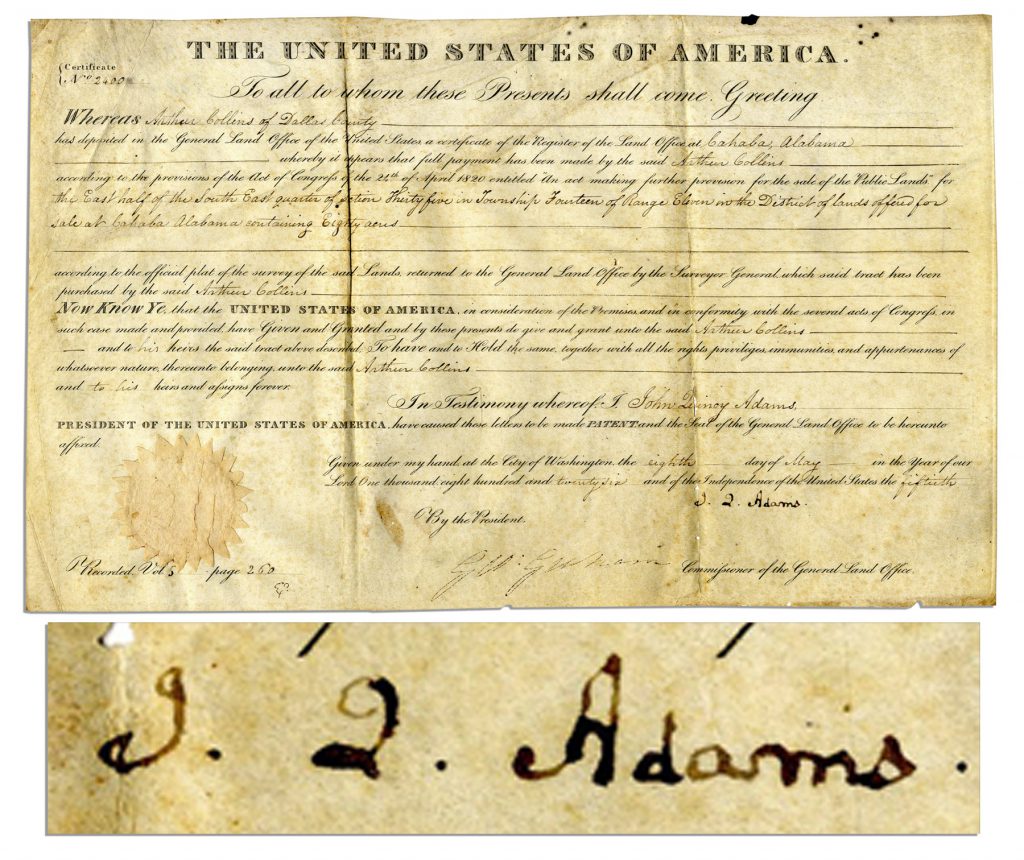 THE UNITED STATES OF AMERICA.
Certificate
No. 2400
To all to whom these Presents shall come, Greeting
Whereas Arthur Collins of Dallas County
has deposited in the General Land Office of the United States a certificate of the Register of the Land Office at Cahaba, Alabama
whereby it appears that full payment has been made by the said Arthur Collins
according to the provisions of the Act of Congress of the 24th of April 1820 entitled "An act making further provision for the sale of the Public Lands" for
the East half of the South East quarter of section Thirty five in Township Fourteen of Range Eleven in the District of lands offered for
sale at Cahaba Alabama containing Eighty acres
according to the official plat of the survey of the said Lands, returned to the General Land Office by the Surveyor General, which said tract has been
purchased by the said Arthur Collins
Now Know Ye, that the UNITED STATES OF AMERICA, in consideration of the Premises, and in conformity with the several acts of Congress, in
such case made and provided, have Given and Granted and by these presents do give and grant unto the said Arthur Collins
and to his heirs the said tract above described, To have and to Hold the same, together with all the rights, privileges, immunities, and appurtenances of
whatsoever nature, thereunto belonging, unto the said Arthur Collins
and to his heirs and assigns forever.
In Testimony whereof, I, John Quincy Adams,
PRESIDENT OF THE UNITED STATES OF AMERICA, have caused these letters to be made PATENT, and the Seal of the General Land Office to be hereunto
affixed.
Given under my hand, at the City of Washington, the eighth day of May in the Year of our
Lord One thousand, eight hundred and twenty six and of the Independence of the United States the fiftieth
J. Q. Adams.
By the President.
Commissioner of the General Land Office.
Recorded, Vol. 5 page 260
J. Q. Adams.